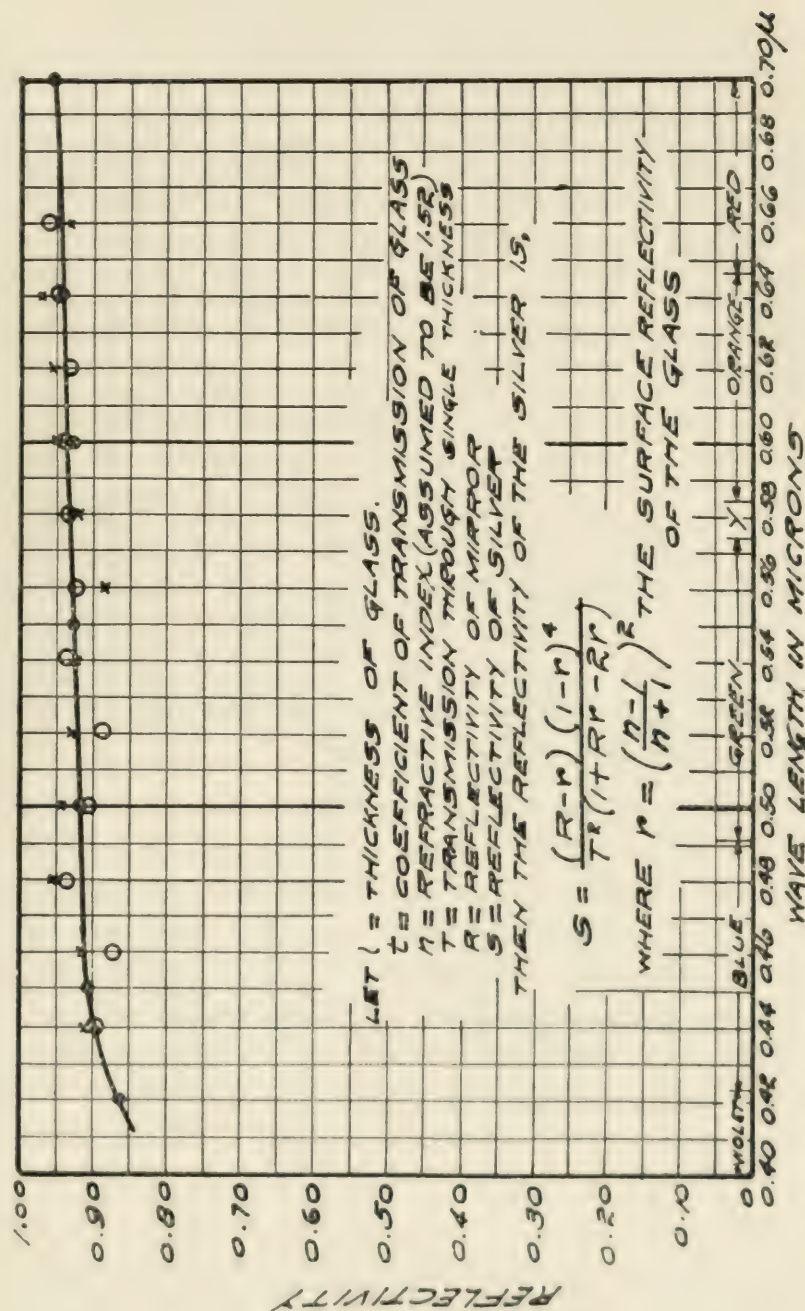 REFLECTIVITY
1.00
0.90
0.80
0.70
0.60
0.50
0.40
0.30
0.20
0.10
0
LET l = THICKNESS OF GLASS.
t = COEFFICIENT OF TRANSMISSION OF GLASS
n = REFRACTIVE INDEX (ASSUMED TO BE 1.52)
T = TRANSMISSION THROUGH SINGLE THICKNESS
R = REFLECTIVITY OF MIRROR
S = REFLECTIVITY OF SILVER
THEN THE REFLECTIVITY OF THE SILVER IS,
S = (R-r)(1-r)^4 / T^2(1+Rr-2r)
WHERE r = (n-1 / n+1)^2 THE SURFACE REFLECTIVITY
OF THE GLASS
VIOLET BLUE GREEN Y ORANGE RED
0.40 0.42 0.44 0.46 0.48 0.50 0.52 0.54 0.56 0.58 0.60 0.62 0.64 0.66 0.68 0.70 μ
WAVE LENGTH IN MICRONS